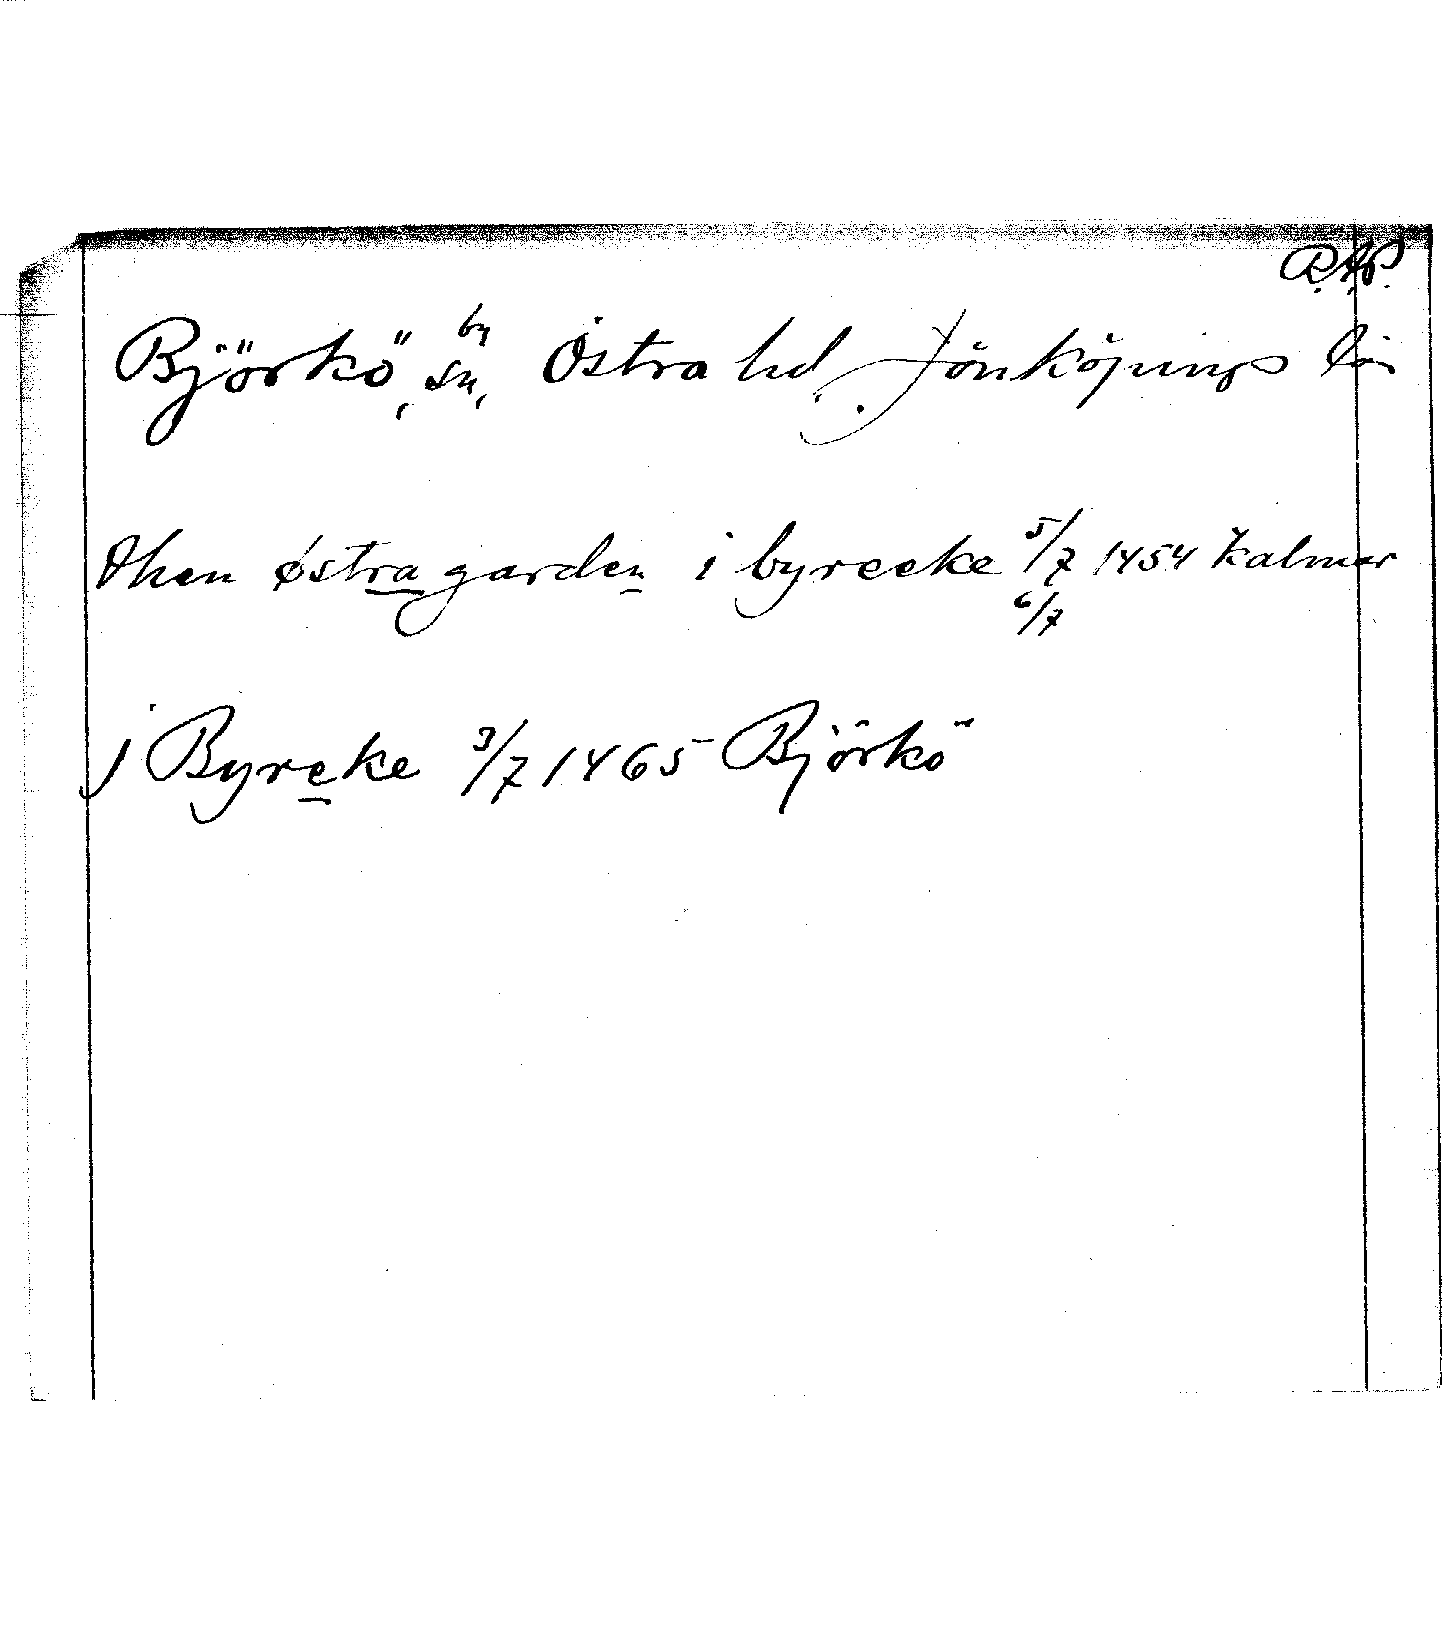 R.A.P.
by
Björkö, sn, Östra hd, Jönköpings län
then østragarden i byrecke 5/7 1454 Kalmar
6/7
j Byreke 3/7 1465 Björkö